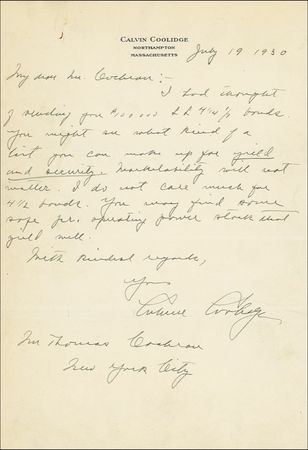 CALVIN COOLIDGE
NORTHAMPTON
MASSACHUSETTS
July 19 1930
My dear Mr. Cochran:-
I had thought
of sending you $100000 LL 4 1/4 % bonds.
You might see what kind of a
list you can make up for yield
and security. Marketability will not
matter. I do not care much for
4 1/2 bonds. You may find some
safe pfr. operating power stock that
yield well.
With kindest regards,
Yours
Calvin Coolidge
Mr Thomas Cochran
New York City